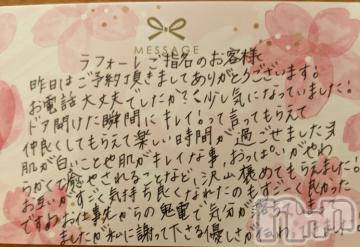 MESSAGE
ラフォーレご指名のお客様
昨日はご予約頂きましてありがとうございます!
お電話大丈夫でしたか?少し気になっていました!
ドア開けた瞬間にキレイ!って言ってもらえて
仲良くしてもらえて楽しい時間が過ごせました
肌が白いことや肌がキレイな事、おっぱいがやわ
らかくて癒やされることなど、沢山褒めてもらえました。
お互いがすごく気持ち良くなれたのもすごく良かった
ですお仕事先からの鬼電で気分が
ましたが私に謝って下さる優しさが